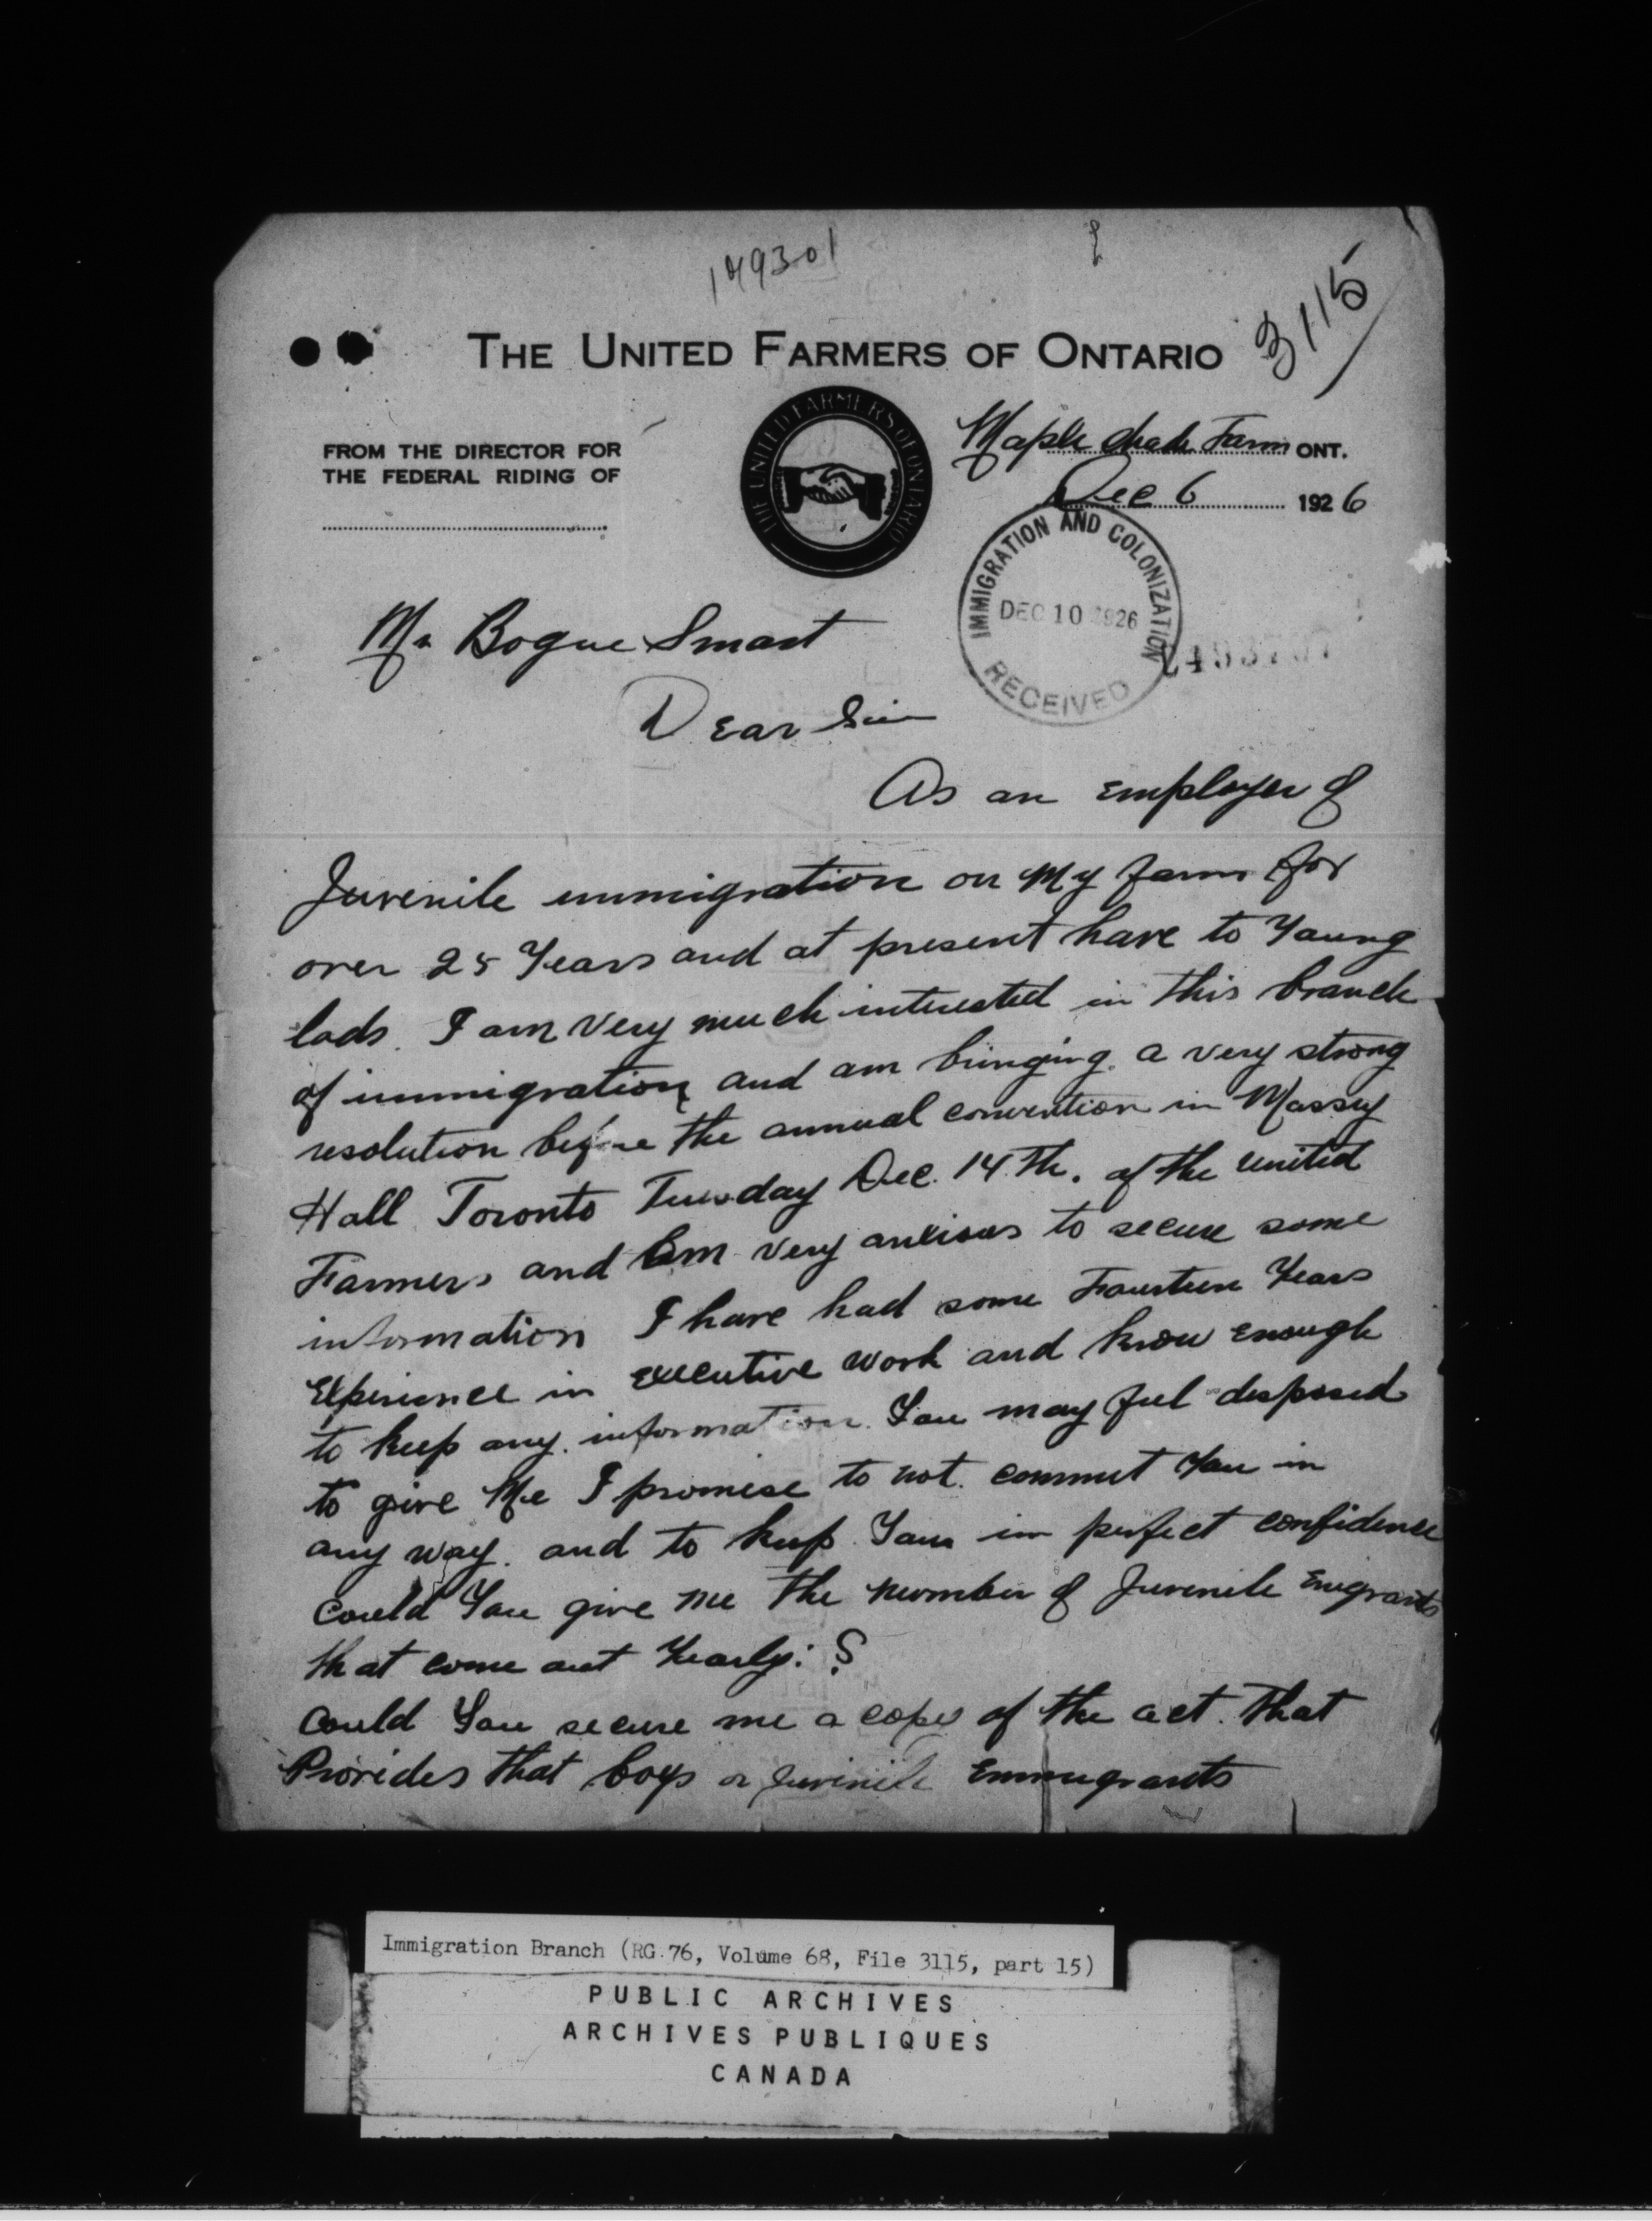 149301
3115
THE UNITED FARMERS OF ONTARIO
FROM THE DIRECTOR FOR
THE FEDERAL RIDING OF
THE UNITED FARMERS OF ONTARIO
Maple Shade Farm ONT.
Dec 6 1926
IMMIGRATION AND COLONIZATION
DEC 10 1926
RECEIVED
Mr Bogue Smart
Dear Sir
As an Employer of
Juvenile immigration on My farm for
over 25 Years and at present have to Young
lads. I am Very much interested in this branch
of immigration and am bringing a very strong
resolution before the annual convention in Massey
Hall Toronto Tuesday Dec. 14 Th. of the United
Farmers and am very anxious to secure some
information I have had some Fourteen Years
Experience in Executive Work and know Enough
to keep any information You may feel disposed
to give Me I promise to not commit You in
any way. and to keep Your in perfect confidence
Could You give me the number of Juvenile Emigrants
that come out Yearly: ?
Could You secure me a copy of the act. That
Provides that boys or Juvenile Emmugrants
Immigration Branch (RG 76, Volume 68, File 3115, part 15)
PUBLIC ARCHIVES
ARCHIVES PUBLIQUES
CANADA